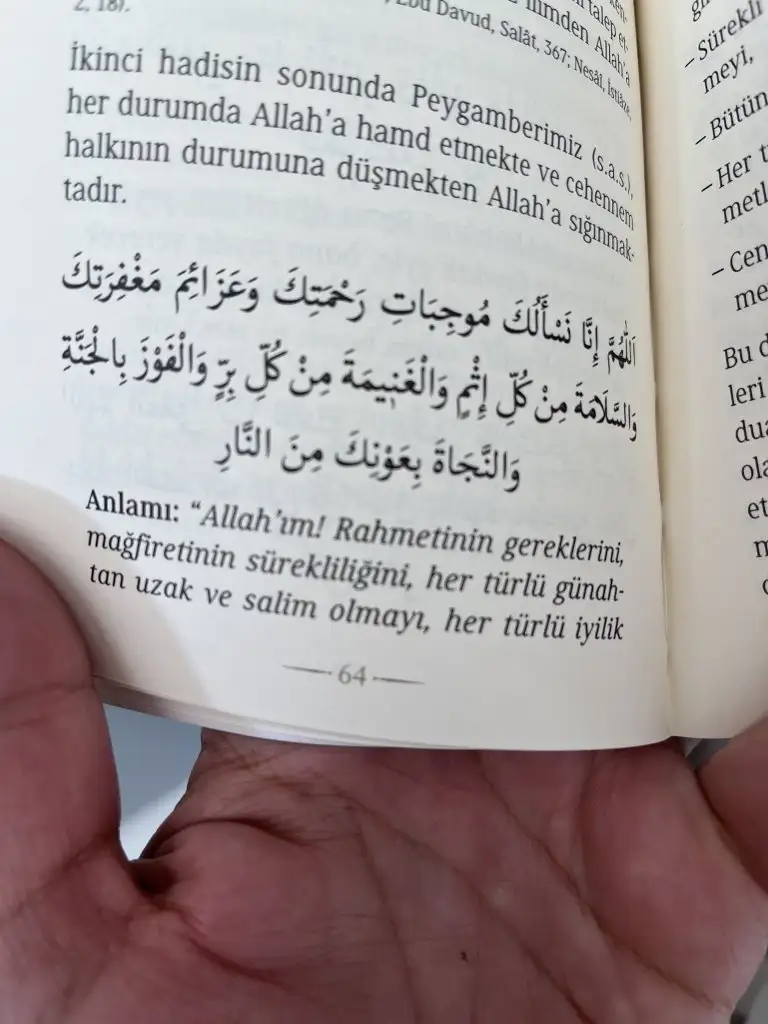 2, 18).
ilimden Allah'a
talep et-
Ebu Davud, Salât, 367; Nesâî, İstiâze,
İkinci hadisin sonunda Peygamberimiz (s.a.s.),
her durumda Allah'a hamd etmekte ve cehennem
halkının durumuna düşmekten Allah'a sığınmak-
tadır.
اَللّٰهُمَّ إِنَّا نَسْأَلُكَ مُوجِبَاتِ رَحْمَتِكَ وَعَزَائِمَ مَغْفِرَتِكَ
وَالسَّلَامَةَ مِنْ كُلِّ إِثْمٍ وَالْغَنِيمَةَ مِنْ كُلِّ بِرٍّ وَالْفَوْزَ بِالْجَنَّةِ
وَالنَّجَاةَ بِعَوْنِكَ مِنَ النَّارِ
Anlamı: “Allah'ım! Rahmetinin gereklerini,
mağfiretinin sürekliliğini, her türlü günah-
tan uzak ve salim olmayı, her türlü iyilik
64
– Sürekli
meyi,
– Bütün
– Her t
metl
– Cen
me
Bu d
leri
dua
ola
et